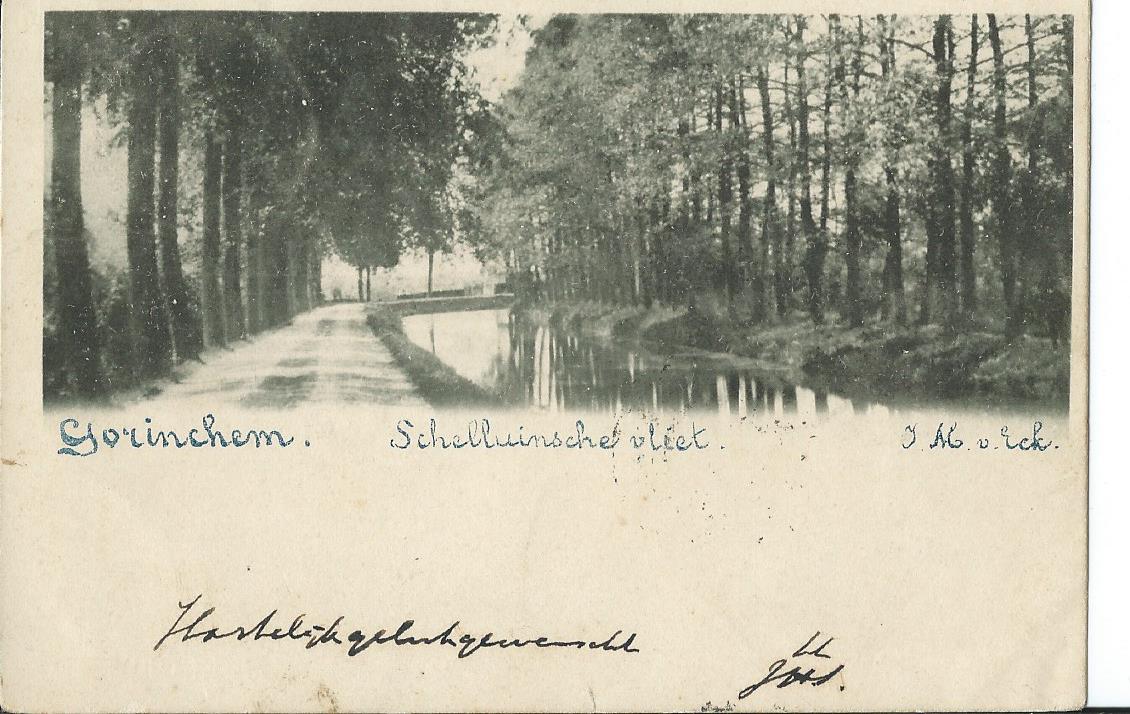 Gorinchem. Schelluinsche vliet. J. M. v. Eck.
Hartelijk geluk gewenscht